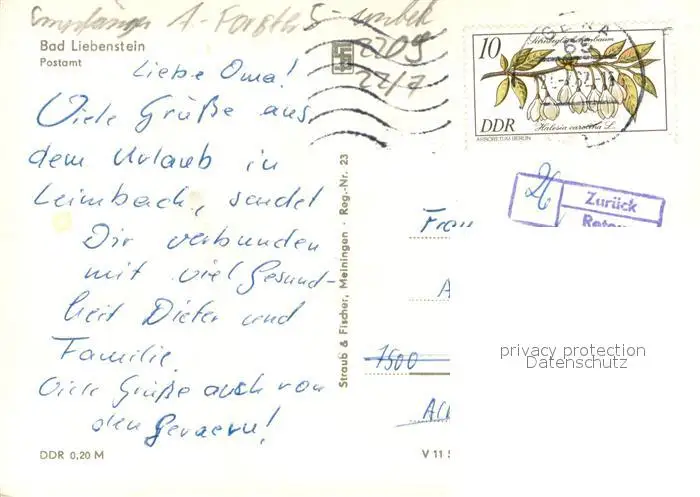 Bad Liebenstein
Postamt
2209
22/7
Liebe Oma!
Viele Grüße aus
dem Urlaub in
Leimbach, sendet
Dir verbunden
mit viel Gesund-
heit Dieter und
Familie.
Viele Grüße auch von
den Geraern!
DDR 0,20 M
Straub & Fischer, Meiningen · Reg.-Nr. 23
V 11
10
Schneeglöckchenbaum
DDR
Halesia carolina L.
ARBORETUM BERLIN
Zurück
Frau
7500
privacy protection
Datenschutz